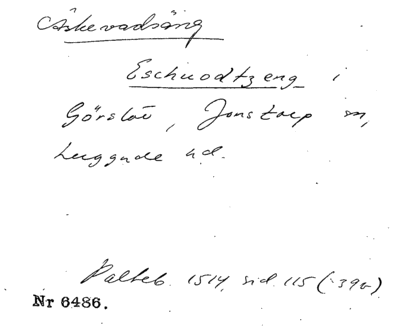 Askevadsäng
Eschuodtzeng i
Görslöv, Jonstorp sn,
Luggude hd.
Palteb. 1514, sid. 115 (:39v)
Nr 6486.